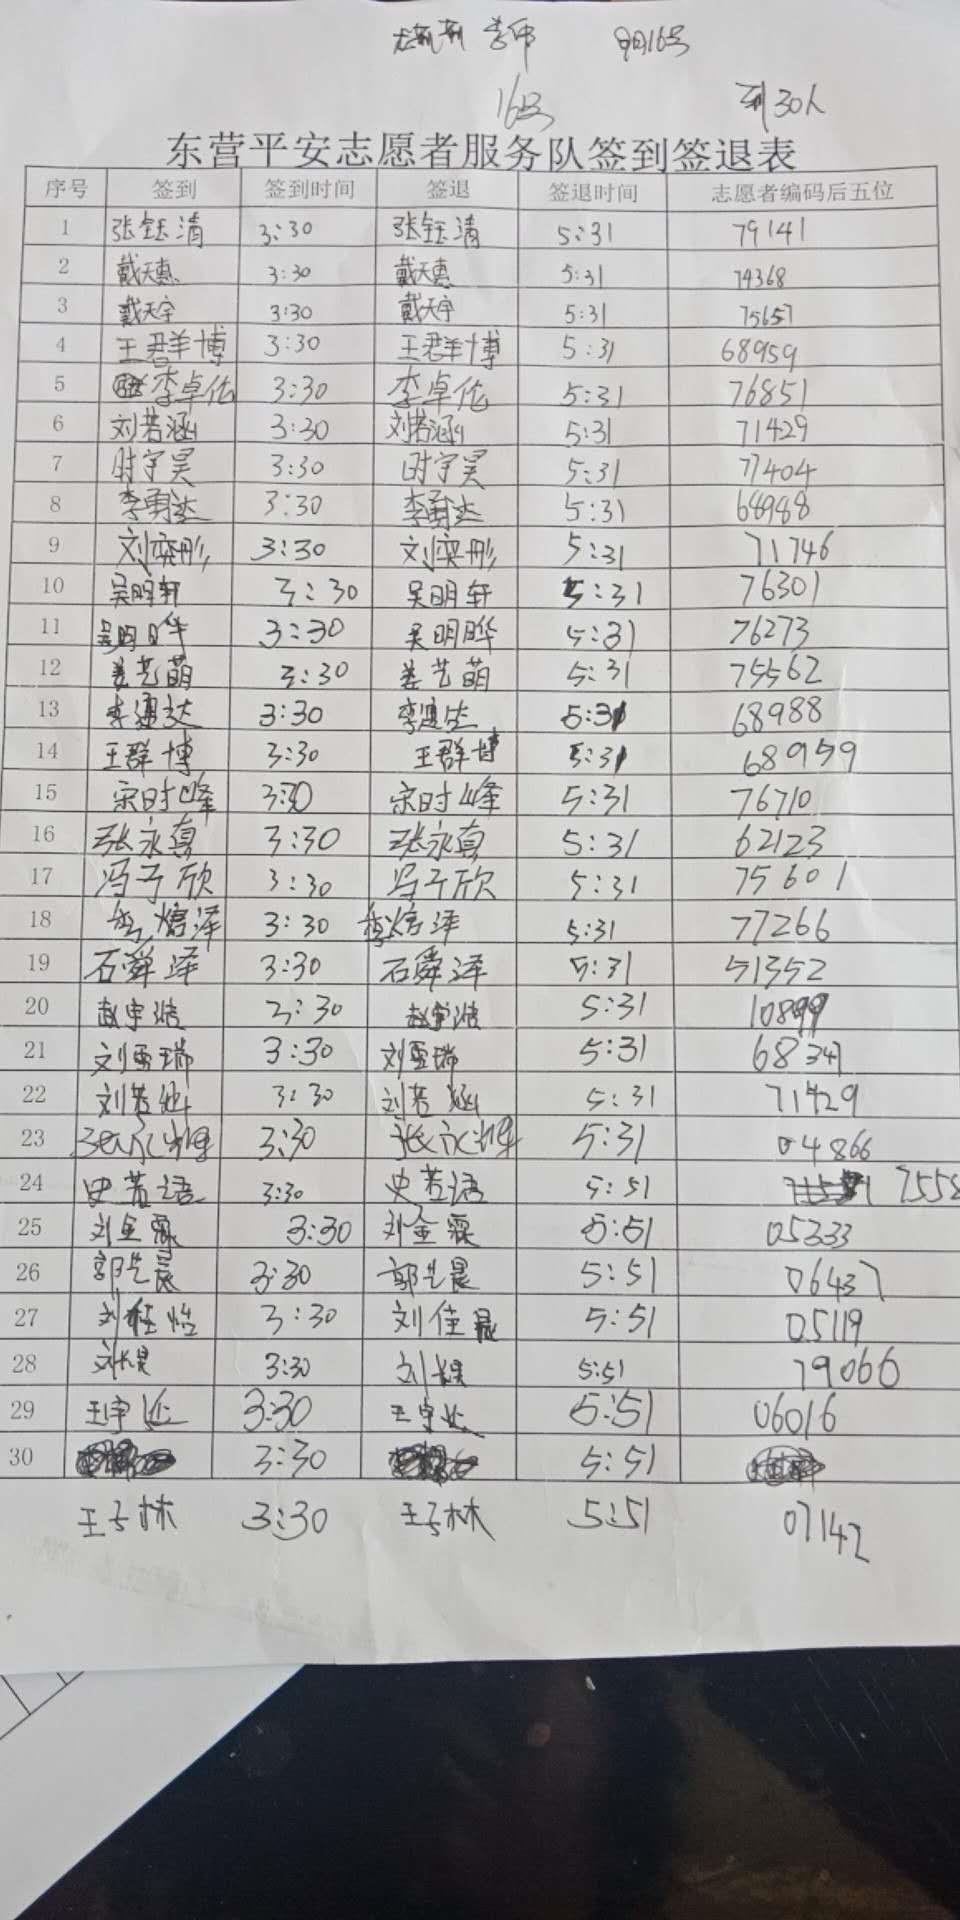 9月16号
16号 到30人
东营平安志愿者服务队签到签退表
序号 签到 签到时间 签退 签退时间 志愿者编码后五位
1 张钰清 3:30 张钰清 5:31 79141
2 戴天惠 3:30 戴天惠 5:31 74368
3 戴天宇 3:30 戴天宇 5:31 75657
4 王君羊博 3:30 王群博 5:31 68959
5 李卓伦 3:30 李卓伦 5:31 76851
6 刘若涵 3:30 刘若涵 5:31 71429
7 时宇昊 3:30 时宇昊 5:31 77404
8 李勇达 3:30 李勇达 5:31 68988
9 刘奕彤 3:30 刘奕彤 5:31 71746
10 吴明轩 3:30 吴明轩 5:31 76301
11 吴明晔 3:30 吴明晔 5:31 76273
12 姜艺萌 3:30 姜艺萌 5:31 75562
13 3:30 5:31 68988
14 王群博 3:30 王群博 5:31 68959
15 宋时峰 3:30 宋时峰 5:31 76710
16 张永真 3:30 张永真 5:31 62123
17 冯子欣 3:30 冯子欣 5:31 75601
18 李熔泽 3:30 李熔泽 5:31 77266
19 石舜泽 3:30 石舜泽 5:31 51352
20 赵宇浩 3:30 赵宇浩 5:31 10899
21 刘雨瑞 3:30 刘雨瑞 5:31 68341
22 刘若涵 3:30 刘若涵 5:31 71429
23 3:30 5:31 04866
24 史若语 3:30 史若语 5:51 7558
25 刘金霖 3:30 刘金霖 5:51 05333
26 郭艺晨 3:30 郭艺晨 5:51 06437
27 刘佳怡 3:30 刘佳 5:51 05119
28 3:30 5:51 79066
29 王宇 3:30 王宇 5:51 06016
30 3:30 5:51
王子林 3:30 王子林 5:51 07142